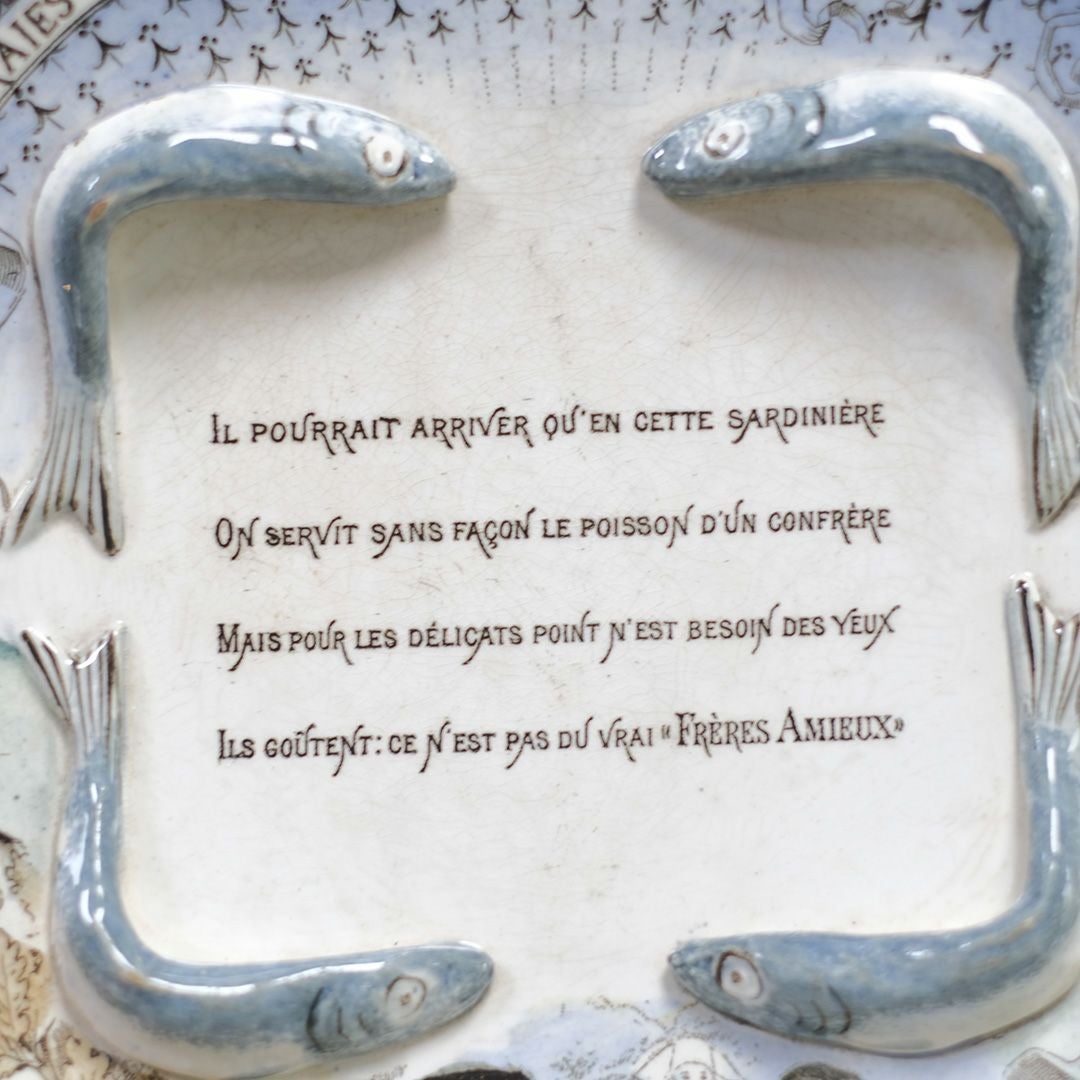 AIES
Il pourrait arriver qu'en cette sardinière
On servit sans façon le poisson d'un confrère
Mais pour les délicats point n'est besoin des yeux
Ils goûtent: ce n'est pas du vrai « Frères Amieux»